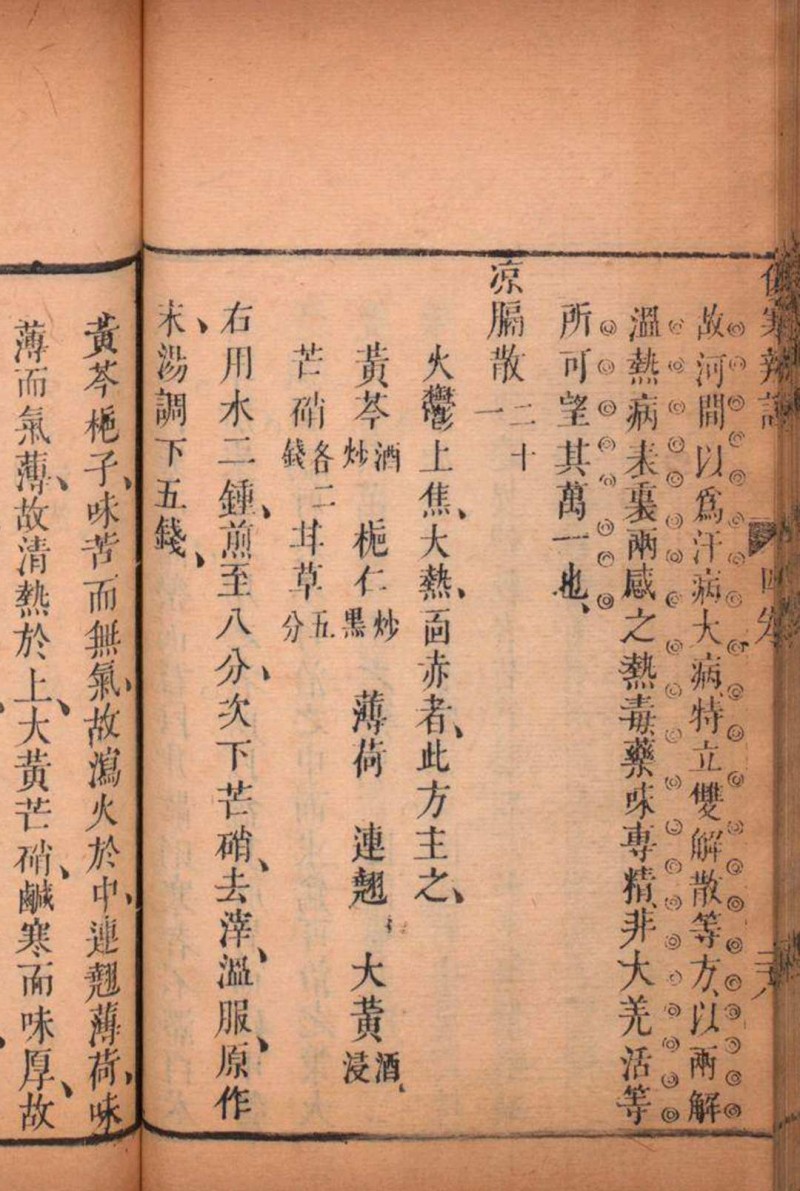 傷寒辨證 四卷
故河間以爲汗病大病、特立雙解散等方、以兩解
溫熱病表裏兩感之熱毒、藥味專精、非大羌活等
所可望其萬一也、
凉膈散二十一
火鬱上焦、大熱、面赤者、此方主之、
黃芩酒炒 梔仁炒黑 薄荷 連翹 大黃酒浸
芒硝各二錢 甘草五分
右用水二鍾、煎至八分、次下芒硝、去滓、溫服、原作
末、湯調下五錢、
黃芩梔子、味苦而無氣、故瀉火於中、連翹薄荷、味
薄而氣薄、故清熱於上、大黃芒硝、鹹寒而味厚、故